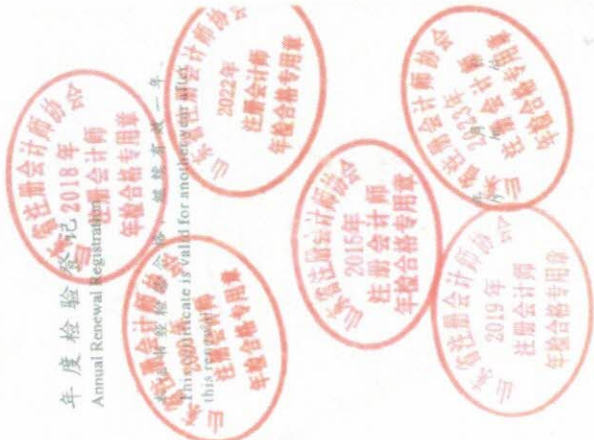 年度检验登记
Annual Renewal Registration
本证书经检验合格，继续有效一年。
This certificate is valid for another year after
this renewal.
山东省注册会计师协会
2018年
注册会计师
年检合格专用章
山东省注册会计师协会
2022年
注册会计师
年检合格专用章
山东省注册会计师协会
注册会计师
年检合格专用章
山东省注册会计师协会
2015年
注册会计师
年检合格专用章
山东省注册会计师协会
2023年
注册会计师
年检合格专用章
山东省注册会计师协会
2019年
注册会计师
年检合格专用章